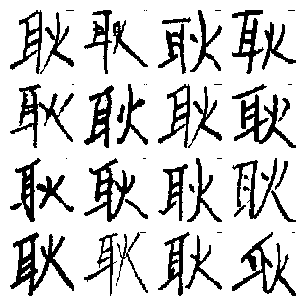 耿耿耿耿
耿耿耿耿
耿耿耿耿
耿耿耿耿